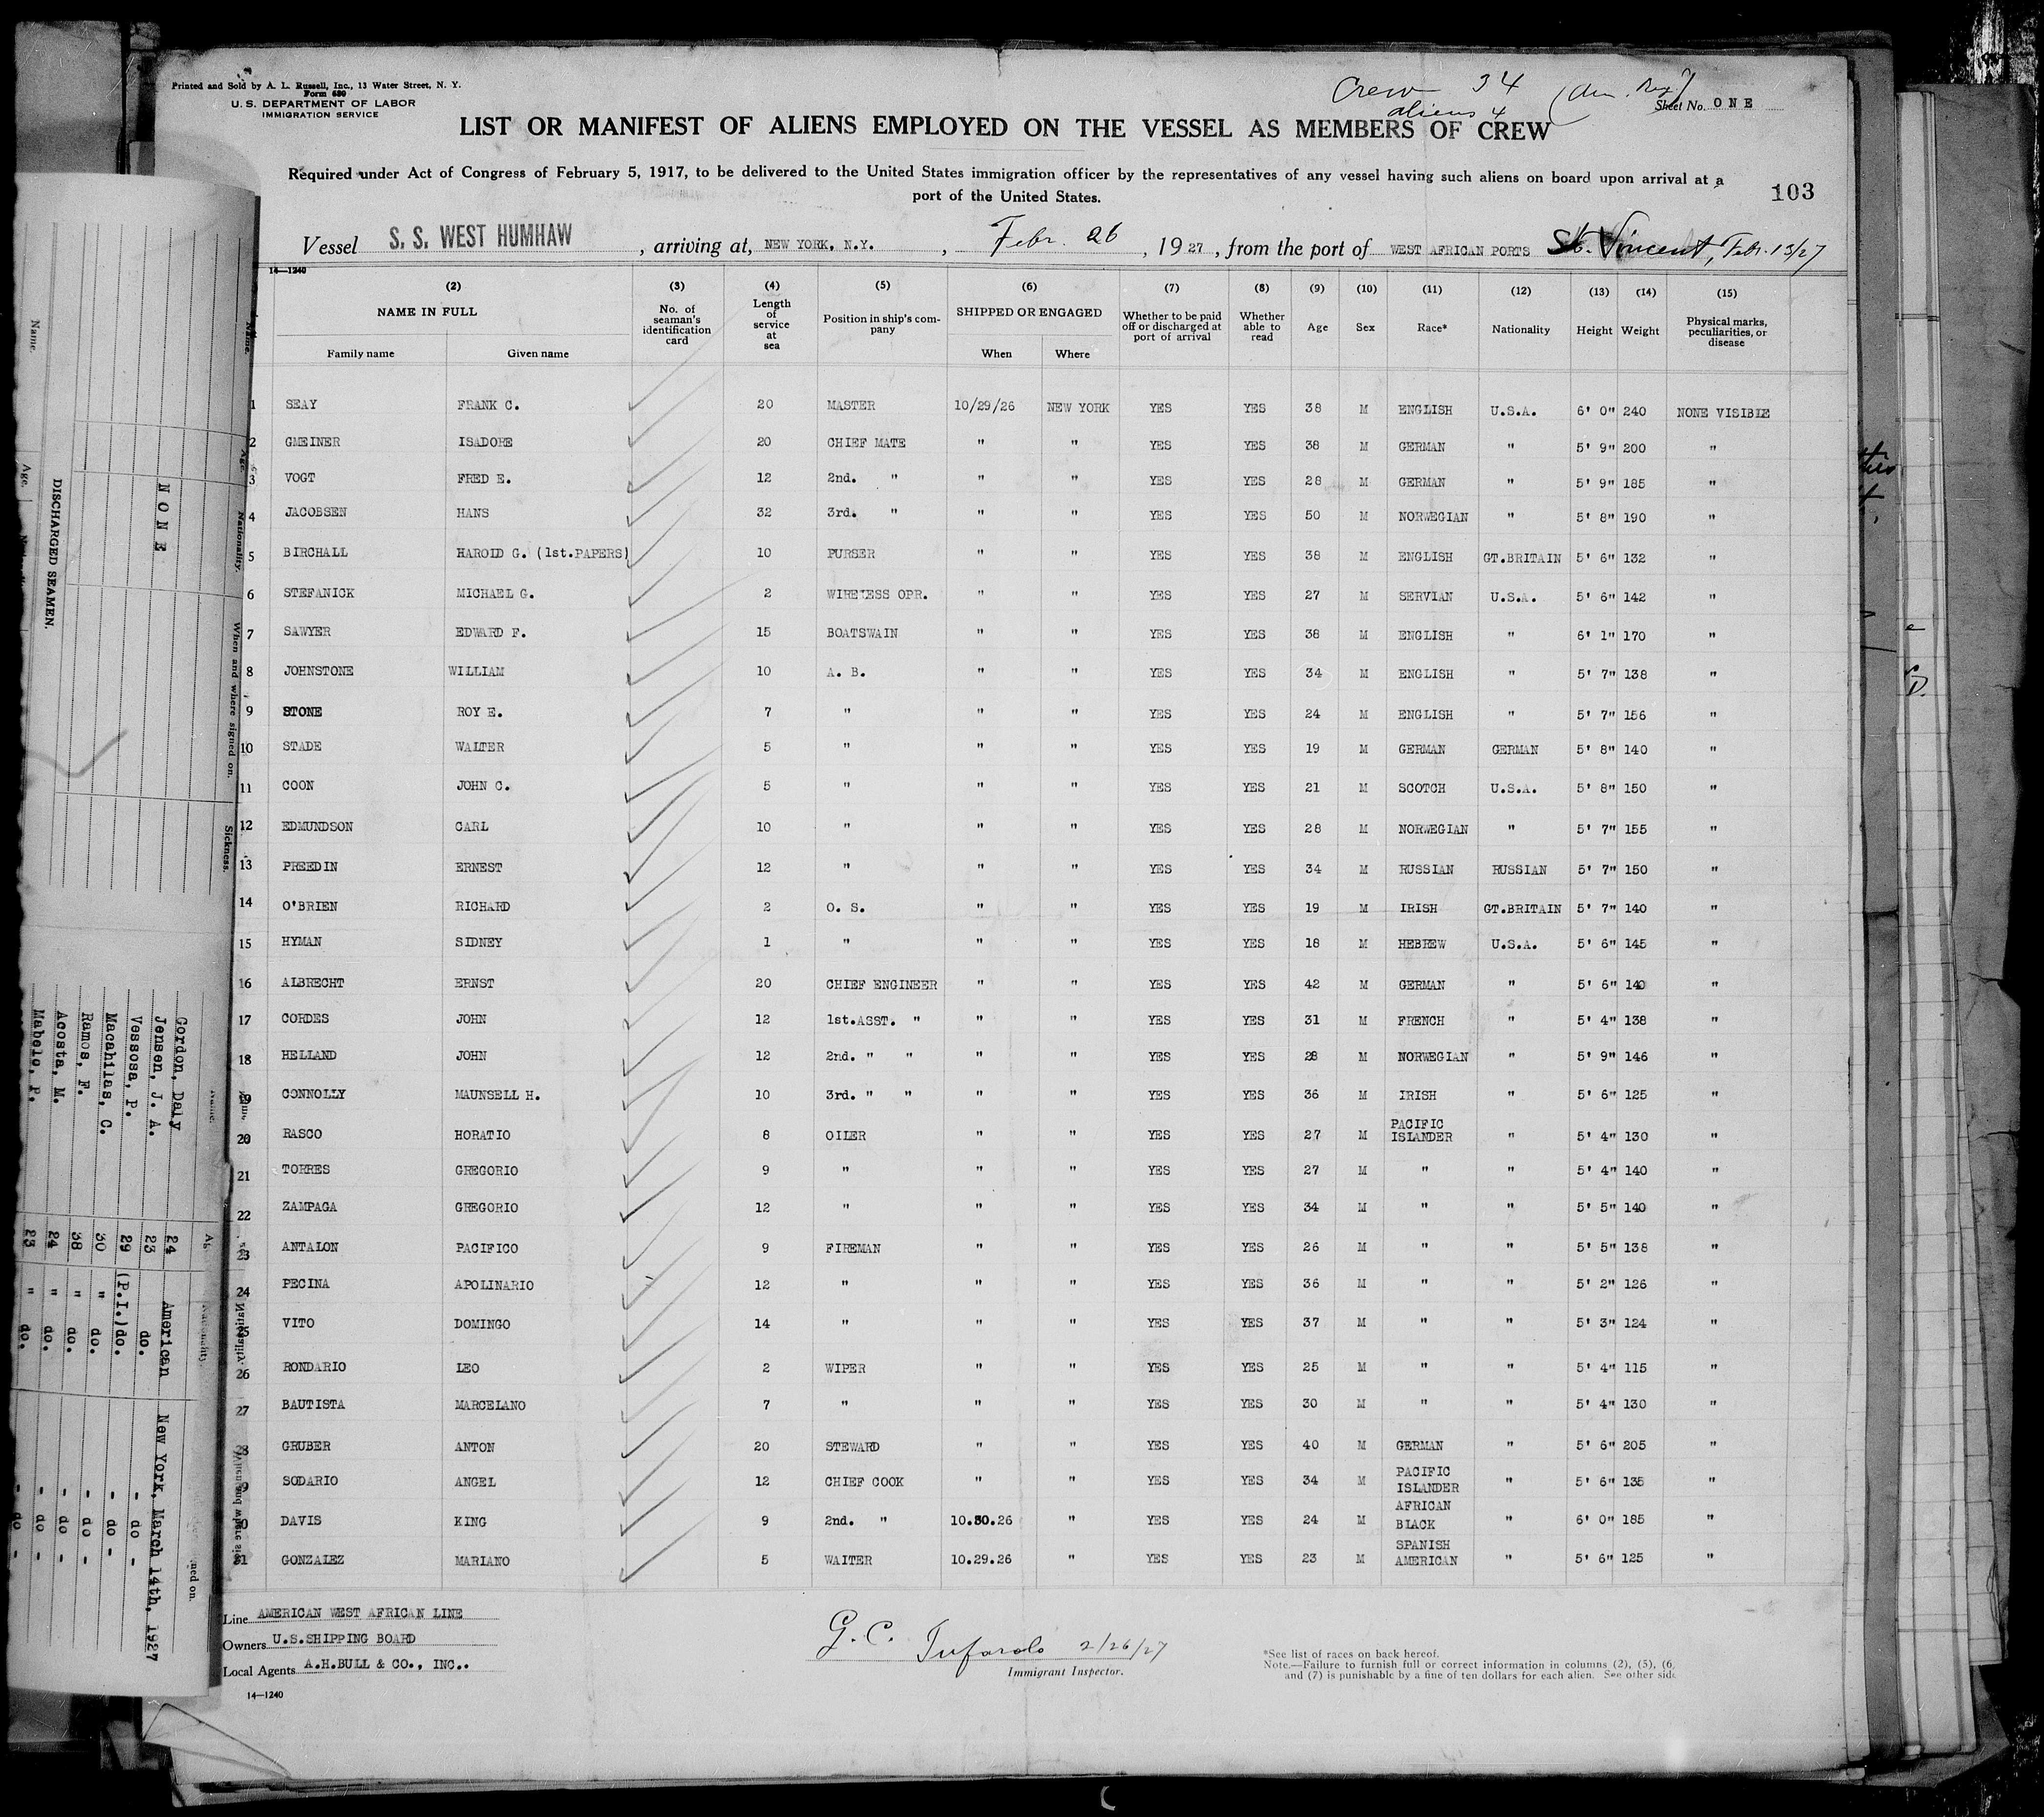 Printed and Sold by A. L. Russell, Inc., 13 Water Street, N. Y.
Form 680
U. S. DEPARTMENT OF LABOR
IMMIGRATION SERVICE
Crew 34
aliens 4
Sheet No. ONE
LIST OR MANIFEST OF ALIENS EMPLOYED ON THE VESSEL AS MEMBERS OF CREW
Required under Act of Congress of February 5, 1917, to be delivered to the United States immigration officer by the representatives of any vessel having such aliens on board upon arrival at a
port of the United States.
103
Vessel S. S. WEST HUMHAW, arriving at, NEW YORK, N.Y., Febr. 26, 1927, from the port of WEST AFRICAN PORTS St. Vincent, Febr. 13/27
14—1240
(2) (3) (4) (5) (6) (7) (8) (9) (10) (11) (12) (13) (14) (15)
NAME IN FULL No. of seaman's identification card Length of service at sea Position in ship's company SHIPPED OR ENGAGED Whether to be paid off or discharged at port of arrival Whether able to read Age Sex Race* Nationality Height Weight Physical marks, peculiarities, or disease
Family name Given name When Where
1 SEAY FRANK C. 20 MASTER 10/29/26 NEW YORK YES YES 38 M ENGLISH U.S.A. 6' 0" 240 NONE VISIBLE
2 GMEINER ISADORE 20 CHIEF MATE " " YES YES 38 M GERMAN " 5' 9" 200 "
3 VOGT FRED E. 12 2nd. " " " YES YES 28 M GERMAN " 5' 9" 185 "
4 JACOBSEN HANS 32 3rd. " " " YES YES 50 M NORWEGIAN " 5' 8" 190 "
5 BIRCHALL HAROLD G. (1st.PAPERS) 10 PURSER " " YES YES 38 M ENGLISH GT.BRITAIN 5' 6" 132 "
6 STEFANICK MICHAEL G. 2 WIRELESS OPR. " " YES YES 27 M SERVIAN U.S.A. 5' 6" 142 "
7 SAWYER EDWARD F. 15 BOATSWAIN " " YES YES 38 M ENGLISH " 6' 1" 170 "
8 JOHNSTONE WILLIAM 10 A. B. " " YES YES 34 M ENGLISH " 5' 7" 138 "
9 STONE ROY E. 7 " " " YES YES 24 M ENGLISH " 5' 7" 156 "
10 STADE WALTER 5 " " " YES YES 19 M GERMAN GERMAN 5' 8" 140 "
11 COON JOHN C. 5 " " " YES YES 21 M SCOTCH U.S.A. 5' 8" 150 "
12 EDMUNDSON CARL 10 " " " YES YES 28 M NORWEGIAN " 5' 7" 155 "
13 PREEDIN ERNEST 12 " " " YES YES 34 M RUSSIAN RUSSIAN 5' 7" 150 "
14 O'BRIEN RICHARD 2 O. S. " " YES YES 19 M IRISH GT.BRITAIN 5' 7" 140 "
15 HYMAN SIDNEY 1 " " " YES YES 18 M HEBREW U.S.A. 5' 6" 145 "
16 ALBRECHT ERNST 20 CHIEF ENGINEER " " YES YES 42 M GERMAN " 5' 6" 140 "
17 CORDES JOHN 12 1st.ASST. " " " YES YES 31 M FRENCH " 5' 4" 138 "
18 HELLAND JOHN 12 2nd. " " " " YES YES 28 M NORWEGIAN " 5' 9" 146 "
19 CONNOLLY MAUNSELL H. 10 3rd. " " " " YES YES 36 M IRISH " 5' 6" 125 "
20 RASCO HORATIO 8 OILER " " YES YES 27 M PACIFIC ISLANDER " 5' 4" 130 "
21 TORRES GREGORIO 9 " " " YES YES 27 M " " 5' 4" 140 "
22 ZAMPAGA GREGORIO 12 " " " YES YES 34 M " " 5' 5" 140 "
23 ANTALON PACIFICO 9 FIREMAN " " YES YES 26 M " " 5' 5" 138 "
24 PECINA APOLINARIO 12 " " " YES YES 36 M " " 5' 2" 126 "
25 VITO DOMINGO 14 " " " YES YES 37 M " " 5' 3" 124 "
26 RONDARIO LEO 2 WIPER " " YES YES 25 M " " 5' 4" 115 "
27 BAUTISTA MARCELANO 7 " " " YES YES 30 M " " 5' 4" 130 "
28 GRUBER ANTON 20 STEWARD " " YES YES 40 M GERMAN " 5' 6" 205 "
9 SODARIO ANGEL 12 CHIEF COOK " " YES YES 34 M PACIFIC ISLANDER " 5' 6" 135 "
0 DAVIS KING 9 2nd. " 10.30.26 " YES YES 24 M AFRICAN BLACK " 6' 0" 185 "
31 GONZALEZ MARIANO 5 WAITER 10.29.26 " YES YES 23 M SPANISH AMERICAN " 5' 6" 125 "
Line AMERICAN WEST AFRICAN LINE
Owners U.S.SHIPPING BOARD
Local Agents A.H.BULL & CO., INC..
14—1240
G. C. 2/26/27
Immigrant Inspector.
*See list of races on back hereof.
Note.—Failure to furnish full or correct information in columns (2), (5), (6,
and (7) is punishable by a fine of ten dollars for each alien. See other side
Name. Age. Nationality. When and where signed on. Sickness.
NONE
DISCHARGED SEAMEN.
Name. Age.
Gordon, Daly 24 American New York, March 14th, 1927
Jensen, J. A. 23 do.
Vessosa, P. 29 (P.I.)do. - do -
Macahilas, C. 30 " do. - do -
Ramos, F. 38 " do. - do -
Acosta, M. 24 " do. - do -
Mabelo, P. 23 " do. - do -